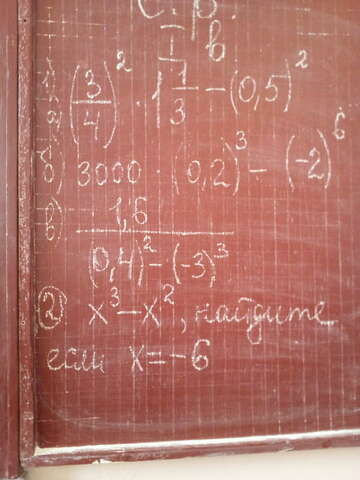 С.р.
I в
1) а) (3/4)² · 1 1/3 – (0,5)²
б) 3000 · (0,2)³ – (-2)⁶
в) 1,6 / (0,4)² – (-3)³
② x³ – x², найдите
если x = -6